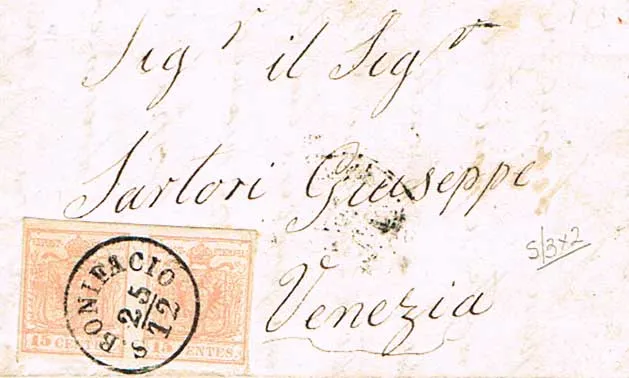 Sigr il Sigr
Sartori Giuseppe
Venezia
S/3x2
S. BONIFACIO
25
12
15 CENTES.
15 CENTES.